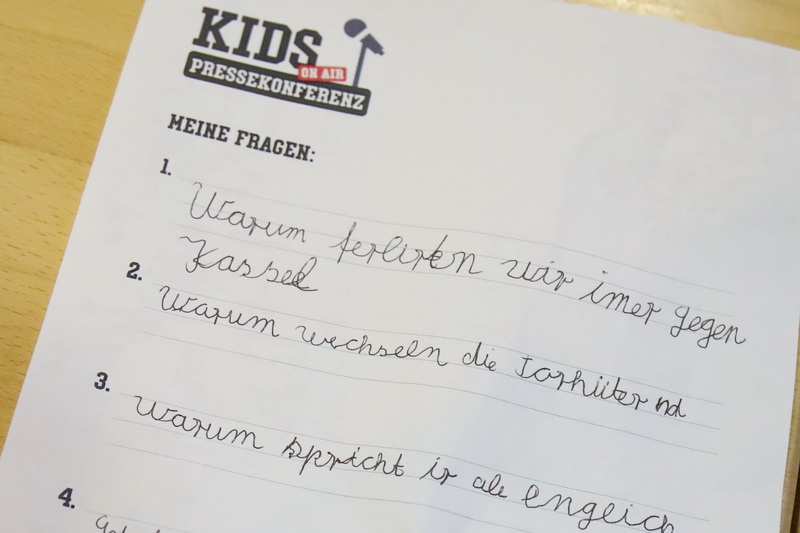 KIDS
ON AIR
PRESSEKONFERENZ
MEINE FRAGEN:
1.
Warum ferlirten wir imer gegen
Kassel
2.
Warum wechseln die Torhüter nd
3.
Warum spricht ir ale engeich
4.